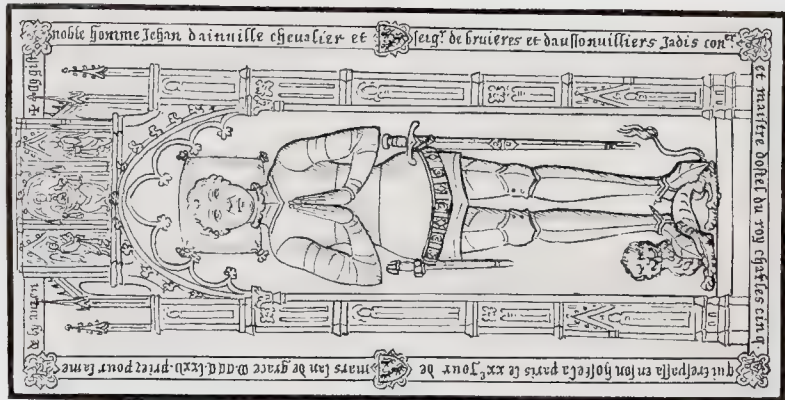 Cy gist
noble homme Jehan dainuille cheualier et seigr. de bruieres et daussonuilliers Jadis coner.
et maistre dostel du roy charles cinq.
qui trespassa en son hostel a paris le xxe Jour de mars lan de grace M.CCC.lxxv. priez pour lame
de ly amen